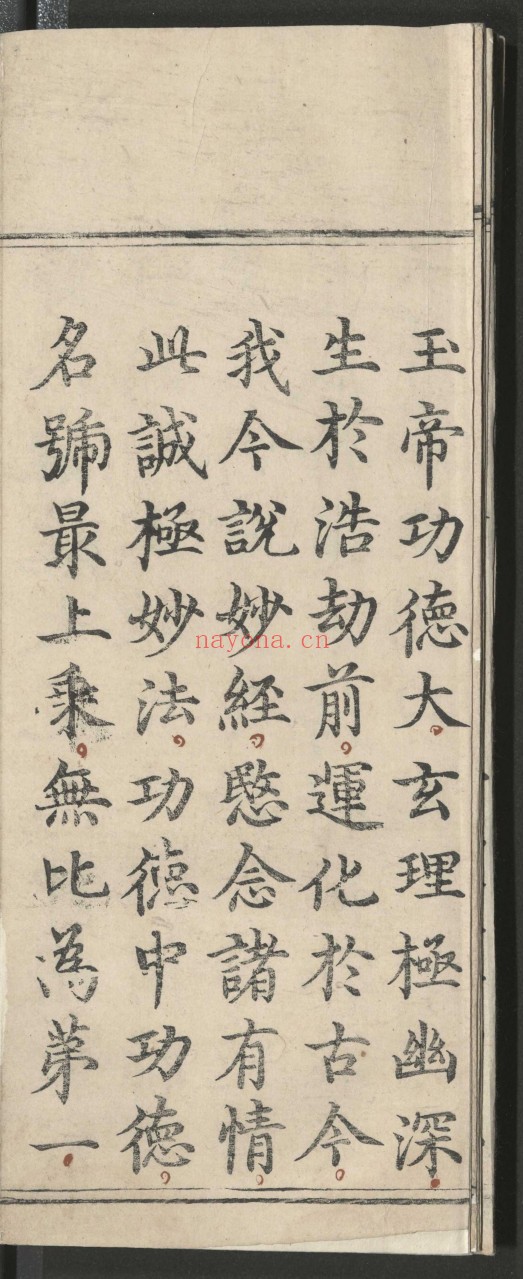 玉帝功德大。玄理極幽深。
生於浩劫前。運化於古今。
我今說妙經。愍念諸有情。
此誠極妙法。功德中功德。
名號最上乘。無比為第一。
nayona.cn